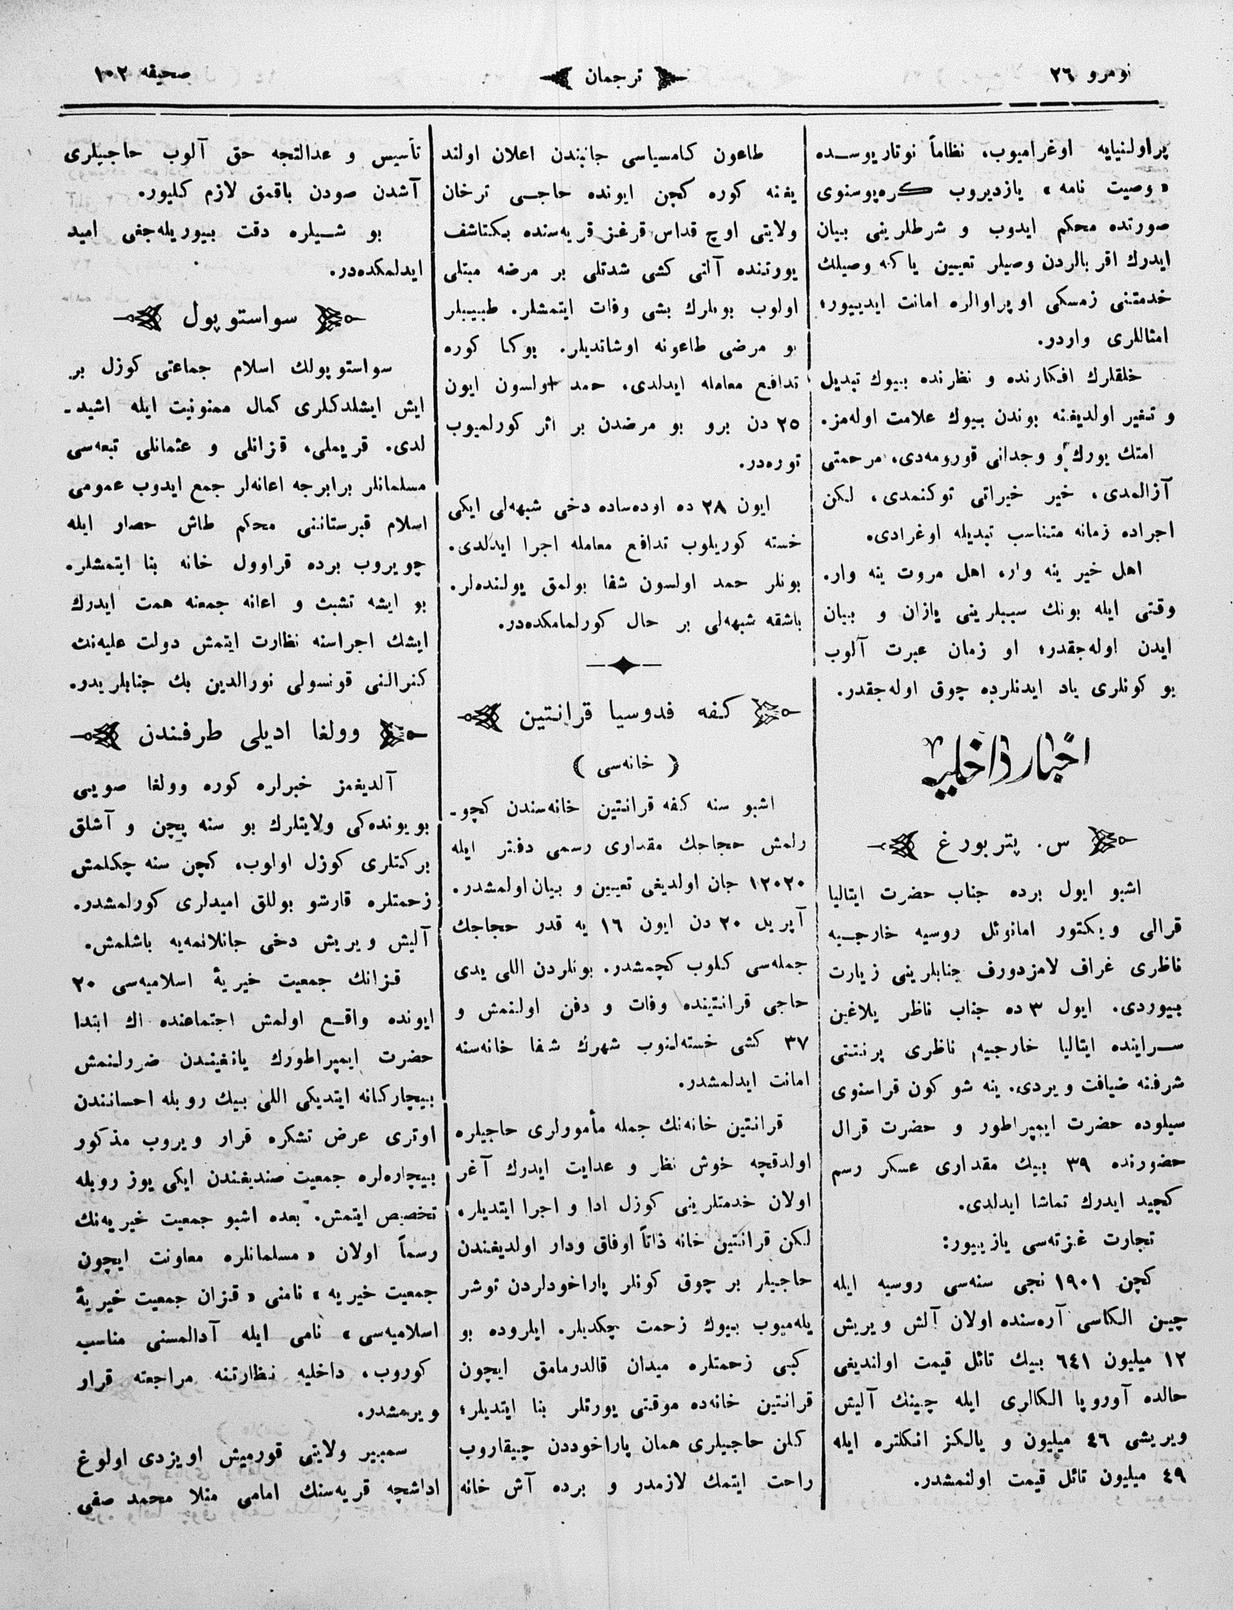 نومرو ٢٦
ترجمان
صحیفه ١٠٢
پراولنیایه اوغرامیوب، نظاماً نوتاریوسده
« وصیت نامه » یازدیروب كره‌پوسنوی
صورتده محكم ایدوب و شرطلرینی بیان
ایدرك اقربالردن وصیلر تعیین یاكه وصیلك
خدمتنی زمسكی اوپراوالره امانت ایدییور؛
امثاللری واردر.
خلقلرك افكارنده و نظرنده بیوك تبدیل
و تغیر اولدیغنه بوندن بیوك علامت اوله‌مز.
امتك یورك و وجدانی قورومه‌دی، مرحمتی
آزالمدی، خیر خیراتی توكنمدی، لكن
اجراده زمانه متناسب تبدیله اوغرادی.
اهل خیر ینه وار، اهل مروت ینه وار.
وقتی ایله بونك سببلرینی یازان و بیان
ایدن اوله‌جقدر؛ او زمان عبرت آلوب
بو كونلری یاد ایدنلرده چوق اوله‌جقدر.
اخبار داخلیه
س. پتربورغ
اشبو ایول برده جناب حضرت ایتالیا
قرالی ویكتور امانوئل روسیه خارجیه
ناظری غراف لامزدورف جنابلرینی زیارت
بیوردی. ایول ٣ ده جناب ناظر یلاغین
سراینده ایتالیا خارجیه ناظری پرنتتی
شرفنه ضیافت ویردی. ینه شو كون قراسنوی
سیلوده حضرت ایمپراطور و حضرت قرال
حضورنده ٣٩ بیك مقداری عسكر رسم
كچید ایدرك تماشا ایدلدی.
تجارت غزته‌سی یازییور:
كچن ١٩٠١ نجی سنه‌سی روسیه ایله
چین الكاسی آره‌سنده اولان آلش ویریش
١٢ میلیون ٦٤١ بیك تائل قیمت اولندیغی
حالده آوروپا الكالری ایله چینك آلیش
ویریشی ٤٦ میلیون و یالكز انكلتره ایله
٤٩ میلیون تائل قیمت اولنمشدر.
طاعون كامسیاسی جانبندن اعلان اولند
یغنه كوره كچن ایونده حاجی ترخان
ولایتی اوچ قداس قرغز قریه‌سنده بكتاشف
یورتنده آلتی كشی شدتلی بر مرضه مبتلی
اولوب بونلرك بشی وفات ایتمشلر. طبیبلر
بو مرضی طاعونه اوشاندیلر. بوكا كوره
تدافع معامله ایدلدی، حمد اولسون ایون
٢٥ دن برو بو مرضدن بر اثر كورلمیوب
توره‌در.
ایون ٢٨ ده اوده‌ساده دخی شبهه‌لی ایكی
خسته كوریلوب تدافع معامله اجرا ایدلدی.
بونلر حمد اولسون شفا بولمق یولنده‌لر.
باشقه شبهه‌لی بر حال كورلمامكده‌در.
كفه فدوسیا قرانتین
( خانه‌سی )
اشبو سنه كفه قرانتین خانه‌سندن كچو-
رلمش حجاجك مقداری رسمی دفتر ایله
١٢٠٢٠ جان اولدیغی تعیین و بیان اولمشدر.
آپریل ٢٠ دن ایون ١٦ یه قدر حجاجك
جمله‌سی كلوب كچمشدر. بونلردن اللی یدی
حاجی قرانتینده وفات و دفن اولنمش و
٣٧ كشی خسته‌لنوب شهرك شفا خانه‌سنه
امانت ایدلمشدر.
قرانتین خانه‌نك جمله مأمورلری حاجیلره
اولدقچه خوش نظر و عدایت ایدرك آغر
اولان خدمتلرینی كوزل ادا و اجرا ایتدیلر.
لكن قرانتین خانه ذاتاً اوفاق ودار اولدیغندن
حاجیلر بر چوق كونلر پاراخودلردن توشر
یله‌میوب بیوك زحمت چكدیلر. ایلروده بو
كبی زحمتلره میدان قالدرمامق ایچون
قرانتین خانه‌ده موقتی یورتلر بنا ایتدیلر؛
كلن حاجیلری همان پاراخوددن چیقاروب
راحت ایتمك لازمدر و برده آش خانه
تأسیس و عدالتجه حق آلوب حاجیلری
آشدن صودن باقمق لازم كلیور.
بو شیلره دقت بیوریله‌جغی امید
ایدلمكده‌در.
سواستوپول
سواستوپولك اسلام جماعتی كوزل بر
ایش ایشلدكلری كمال ممنونیت ایله اشید-
لدی. قریملی، قزانلی و عثمانلی تبعه‌سی
مسلمانلر برابرجه اعانه‌لر جمع ایدوب عمومی
اسلام قبرستاننی محكم طاش حصار ایله
چویروب برده قراوول خانه بنا ایتمشلر.
بو ایشه تشبث و اعانه جمعنه همت ایدرك
ایشك اجراسنه نظارت ایتمش دولت علیه‌نك
كنرالنی قونسولی نورالدین بك جنابلریدر.
وولغا ادیلی طرفندن
آلدیغمز خبرلره كوره وولغا صویی
بویونده‌كی ولایتلرك بو سنه پچن و آشلق
بركتلری كوزل اولوب، كچن سنه چكلمش
زحمتلره قارشو بوللق امیدلری كورلمشدر.
آلیش ویریش دخی جانلانمه‌یه باشلمش.
قزانك جمعیت خیریهٔ اسلامیه‌سی ٢٠
ایونده واقع اولمش اجتماعنده اك ابتدا
حضرت ایمپراطورك یانغیندن ضررلنمش
بیچاركانه ایتدیكی اللی بیك روبله احسانندن
اوتری عرض تشكره قرار ویروب مذكور
بیچاره‌لره جمعیت صندیغندن ایكی یوز روبله
تخصیص ایتمش. بعده اشبو جمعیت خیریه‌نك
رسماً اولان « مسلمانلره معاونت ایچون
جمعیت خیریه » نامنی « قزان جمعیت خیریهٔ
اسلامیه‌سی » نامی ایله آدالمسنی مناسب
كوروب، داخلیه نظارتنه مراجعته قرار
ویرمشدر.
سمبیر ولایتی قورمیش اویزدی اولوغ
اداشچه قریه‌سنك امامی منلا محمد صفی